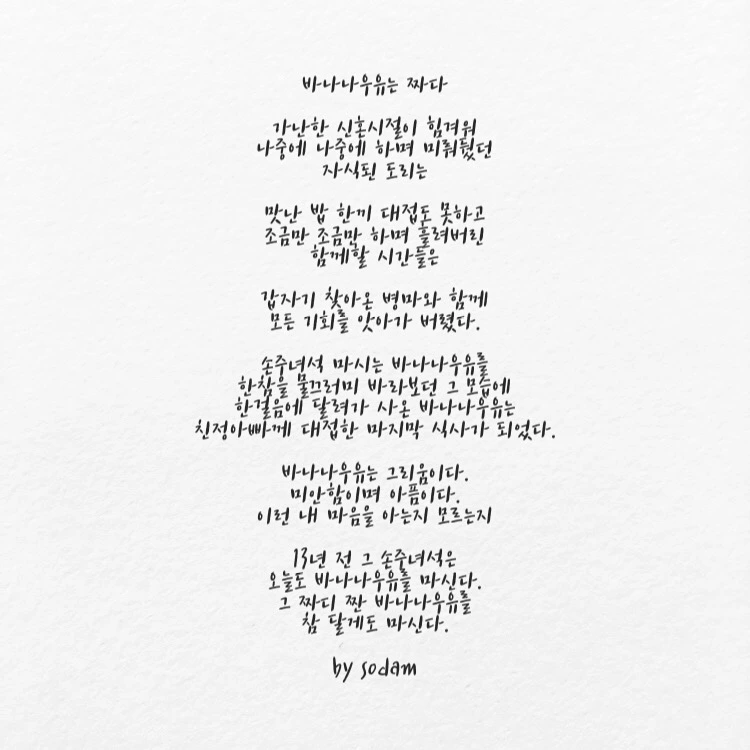 바나나우유는 짜다
가난한 신혼시절이 힘겨워
나중에 나중에 하며 미뤄뒀던
자식된 도리는
맛난 밥 한끼 대접도 못하고
조금만 조금만 하며 흘려버린
함께할 시간들은
갑자기 찾아온 병마와 함께
모든 기회를 앗아가 버렸다.
손주녀석 마시는 바나나우유를
한참을 물끄러미 바라보던 그 모습에
한걸음에 달려가 사온 바나나우유는
친정아빠께 대접한 마지막 식사가 되었다.
바나나우유는 그리움이다.
미안함이며 아픔이다.
이런 내 마음을 아는지 모르는지
13년 전 그 손주녀석은
오늘도 바나나우유를 마신다.
그 짜디 짠 바나나우유를
참 달게도 마신다.
by sodam